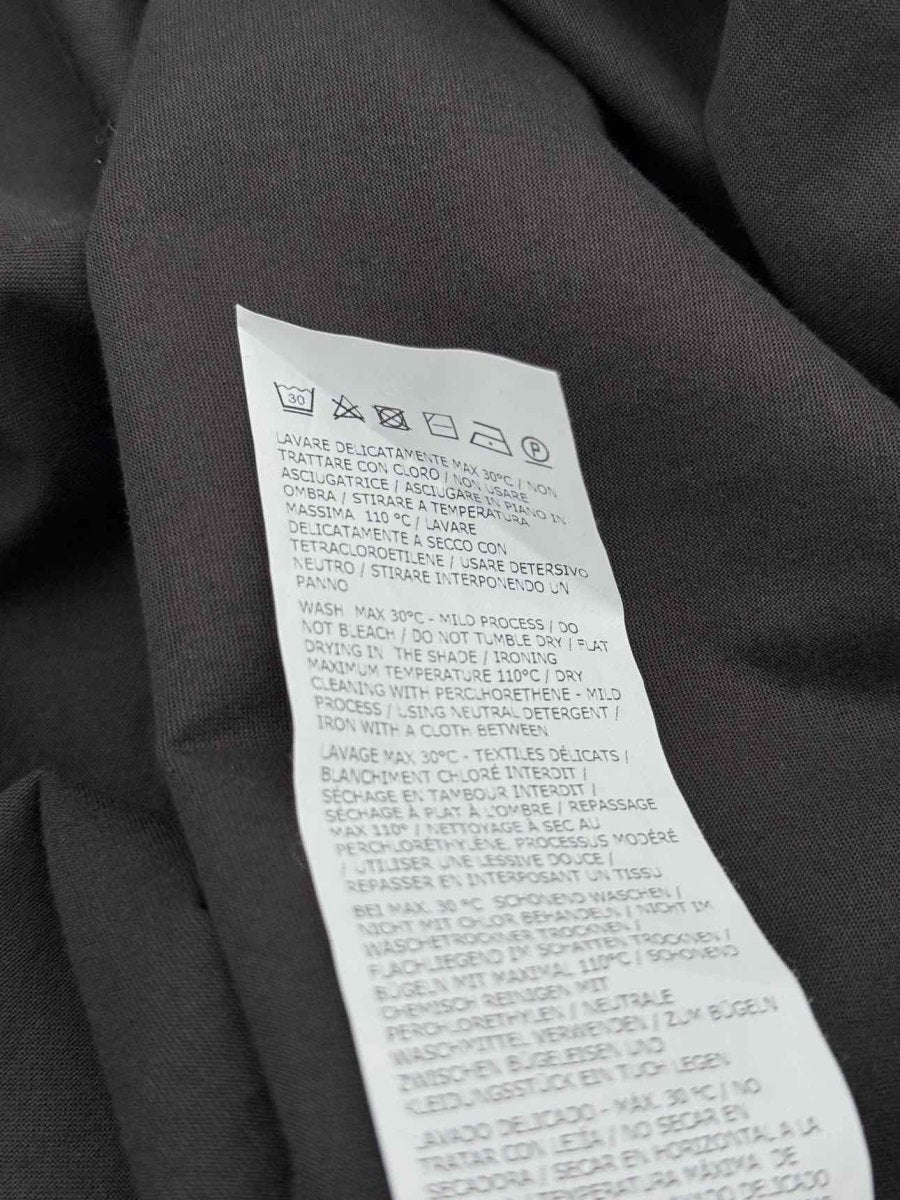 30
P
LAVARE DELICATAMENTE MAX 30°C / NON
TRATTARE CON CLORO / NON USARE
ASCIUGATRICE / ASCIUGARE IN PIANO IN
OMBRA / STIRARE A TEMPERATURA
MASSIMA 110 °C / LAVARE
DELICATAMENTE A SECCO CON
TETRACLOROETILENE / USARE DETERSIVO
NEUTRO / STIRARE INTERPONENDO UN
PANNO
WASH MAX 30°C - MILD PROCESS / DO
NOT BLEACH / DO NOT TUMBLE DRY / FLAT
DRYING IN THE SHADE / IRONING
MAXIMUM TEMPERATURE 110°C / DRY
CLEANING WITH PERCLHORETHENE - MILD
PROCESS / USING NEUTRAL DETERGENT /
IRON WITH A CLOTH BETWEEN
LAVAGE MAX 30°C - TEXTILES DÉLICATS /
BLANCHIMENT CHLORÉ INTERDIT /
SÉCHAGE EN TAMBOUR INTERDIT /
SÉCHAGE À PLAT À L'OMBRE / REPASSAGE
MAX 110° / NETTOYAGE À SEC AU
PERCHLORÉTHYLÈNE, PROCESSUS MODÉRÉ
/ UTILISER UNE LESSIVE DOUCE /
REPASSER EN INTERPOSANT UN TISSU
BEI MAX. 30 °C SCHONEND WASCHEN /
NICHT MIT CHLOR BEHANDELN / NICHT IM
WÄSCHETROCKNER TROCKNEN /
FLACHLIEGEND IM SCHATTEN TROCKNEN /
BÜGELN MIT MAXIMAL 110°C / SCHONEND
CHEMISCH REINIGEN MIT
PERCHLORETHYLEN / NEUTRALE
WASCHMITTEL VERWENDEN / ZUM BÜGELN
ZWISCHEN BÜGELEISEN UND
KLEIDUNGSSTÜCK EIN TUCH LEGEN
LAVADO DELICADO - MÁX. 30 °C / NO
TRATAR CON LEJÍA / NO SECAR EN
SECADORA / SECAR EN HORIZONTAL A LA
TEMPERATURA MÁXIMA DE
DELICADO